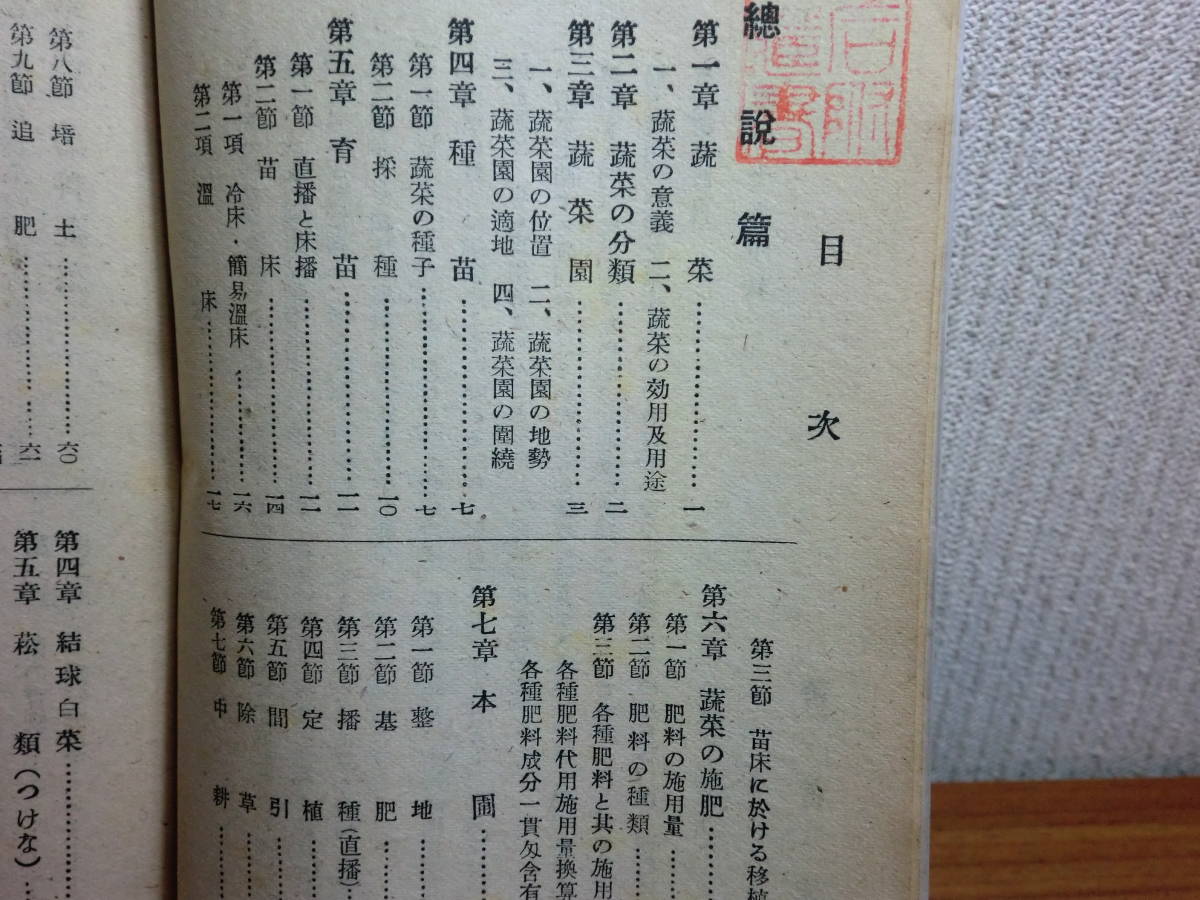 目次
總說篇
第一章 蔬菜……一
一、蔬菜の意義 二、蔬菜の効用及用途
第二章 蔬菜の分類……二
第三章 蔬菜園……三
一、蔬菜園の位置 二、蔬菜園の地勢
三、蔬菜園の適地 四、蔬菜園の圍繞
第四章 種苗……七
第一節 蔬菜の種子……七
第二節 採種……一〇
第五章 育苗……一一
第一節 直播と床播……一一
第二節 苗床……一四
第一項 冷床・簡易溫床……一六
第二項 溫床……一七
第三節 苗床に於ける移植
第六章 蔬菜の施肥……
第一節 肥料の施用量……
第二節 肥料の種類……
第三節 各種肥料と其の施用
各種肥料代用施用量換算
各種肥料成分一貫匁含有
第七章 本圃……
第一節 整地……
第二節 基肥……
第三節 播種(直播)……
第四節 定植……
第五節 間引……
第六節 除草……
第七節 中耕……
第八節 培土……六〇
第九節 追肥……六一
第四章 結球白菜……
第五章 菘類(つけな)……